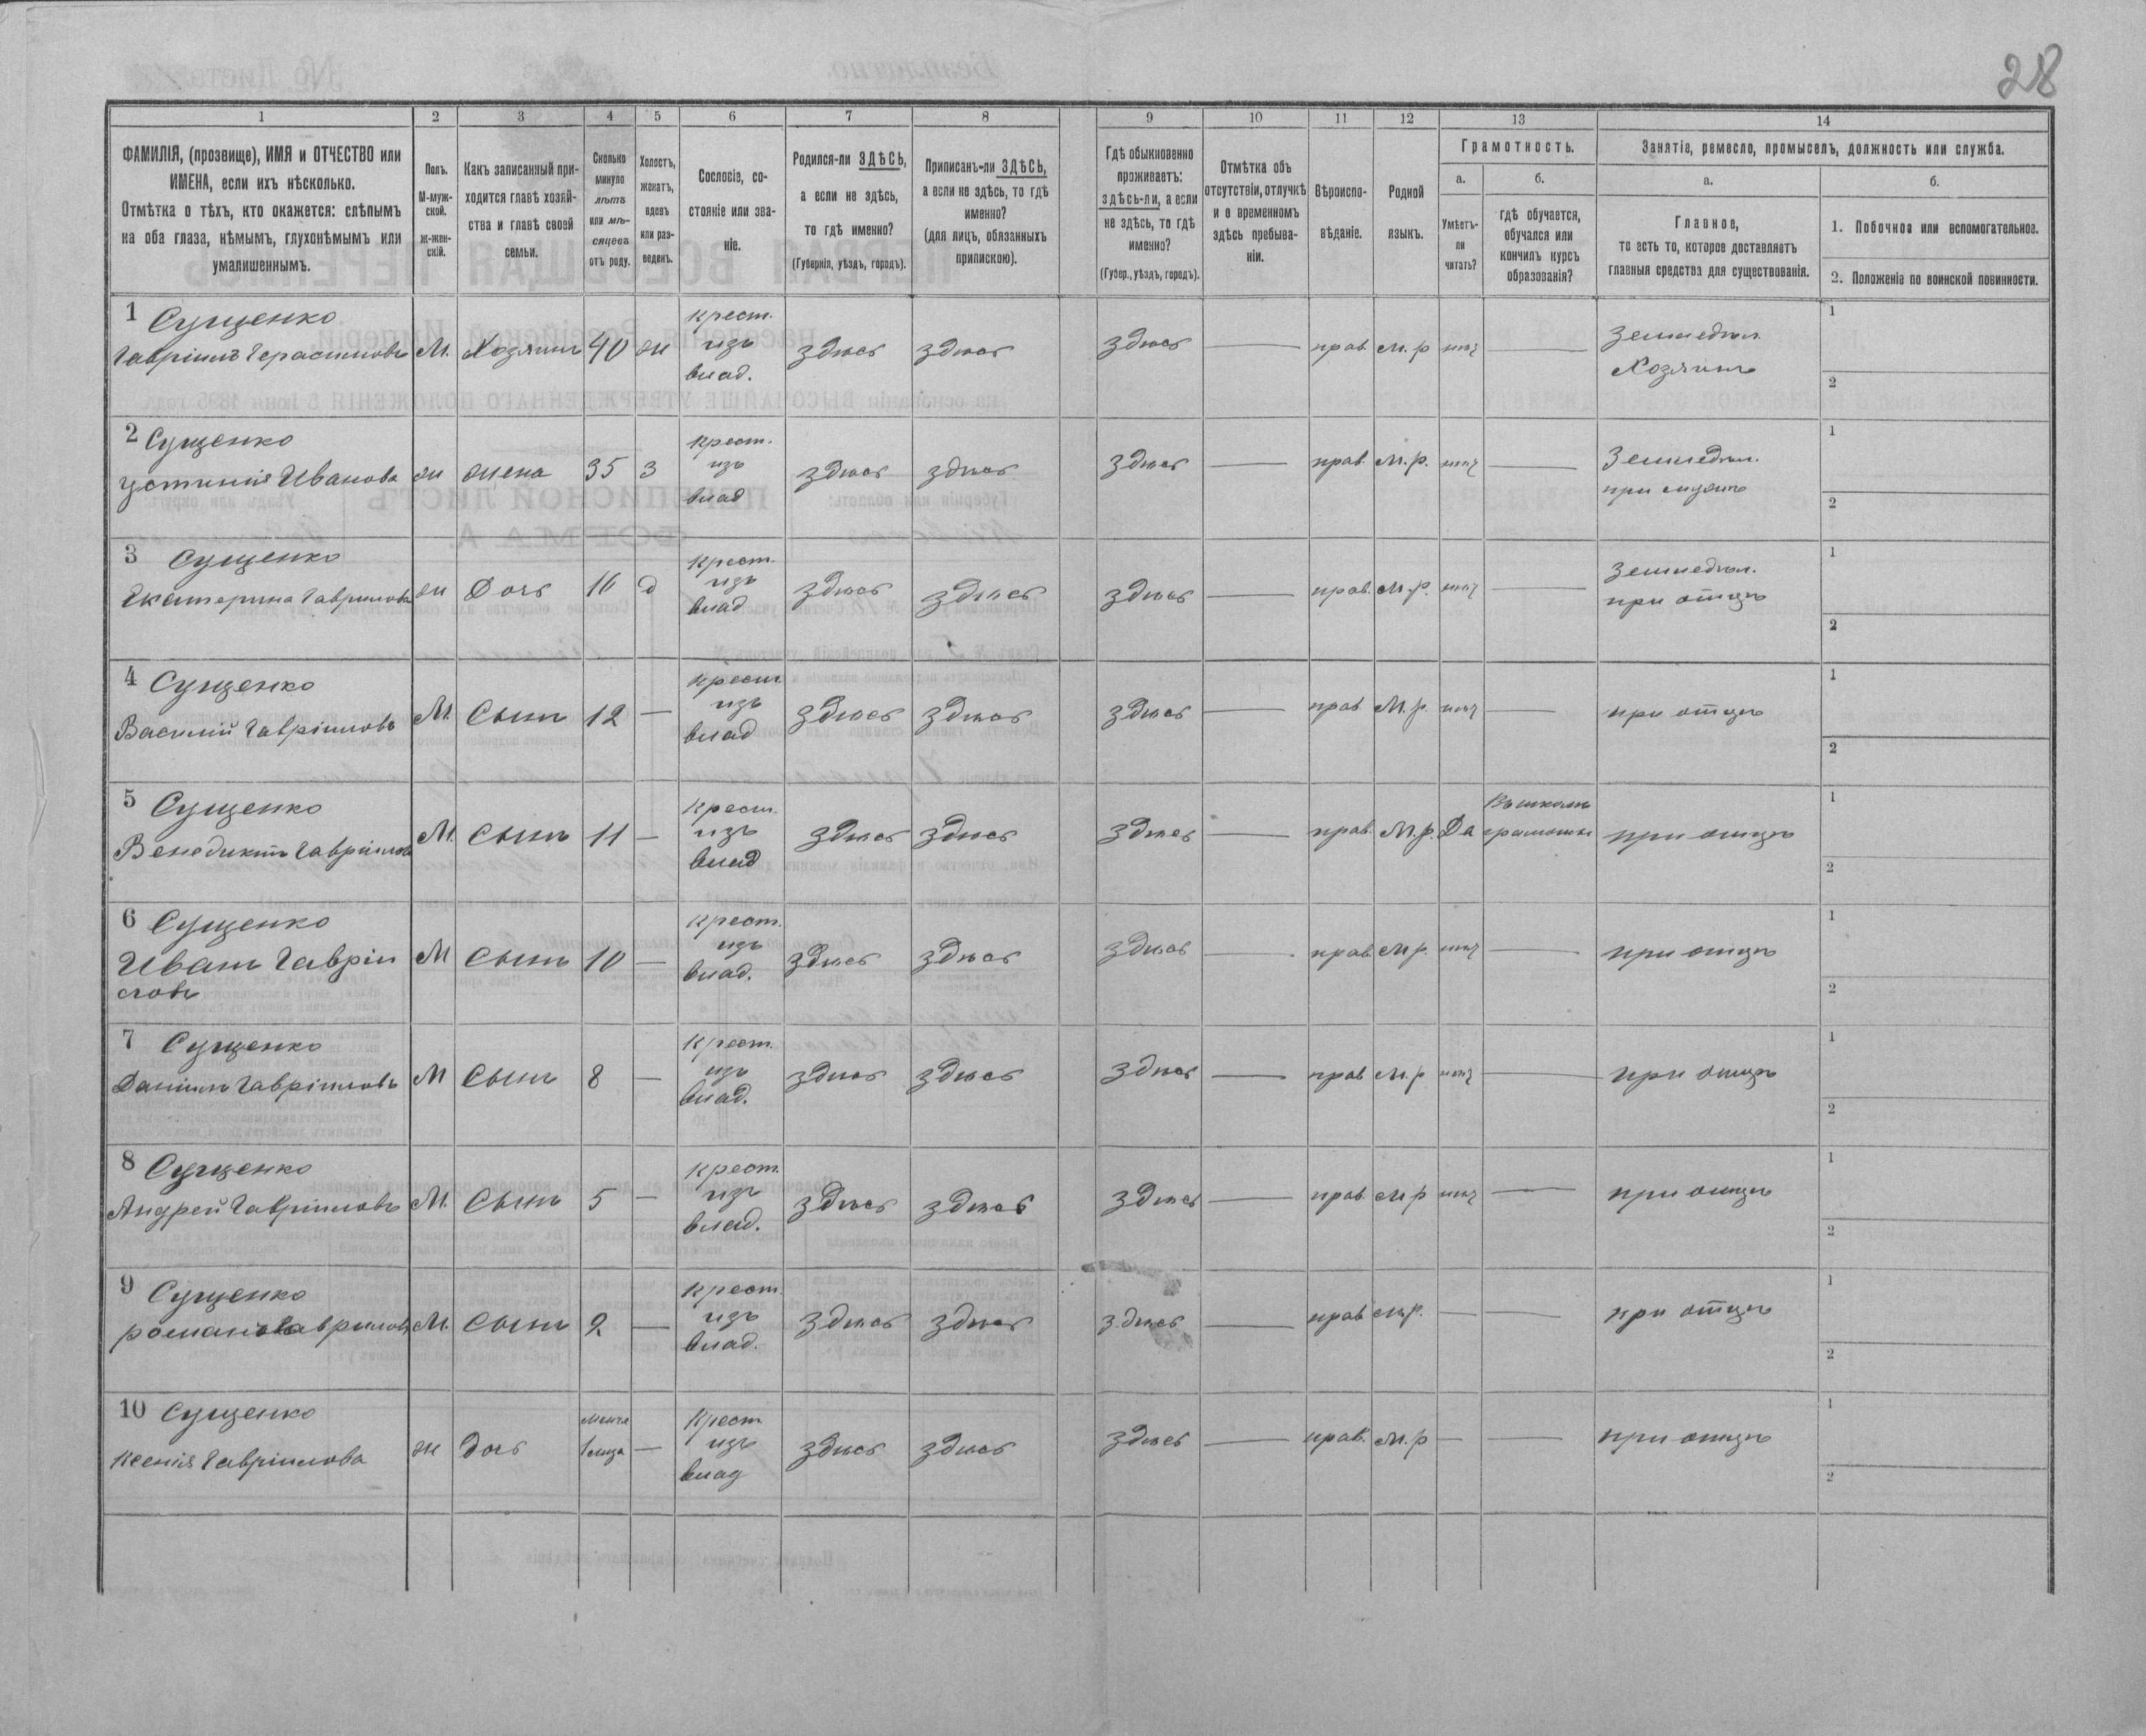 28
1 2 3 4 5 6 7 8 9 10 11 12 13 14
ФАМИЛІЯ, (прозвище), ИМЯ и ОТЧЕСТВО или
ИМЕНА, если ихъ нѣсколько.
Отмѣтка о тѣхъ, кто окажется: слѣпымъ
на оба глаза, нѣмымъ, глухонѣмымъ или
умалишеннымъ.
Полъ.
М-муж-
ской.
ж-жен-
скій.
Какъ записанный при-
ходится главѣ хозяй-
ства и главѣ своей
семьи.
Сколько
минуло
лѣтъ
или мѣ-
сяцевъ
отъ роду.
Холостъ,
женатъ,
вдовъ
или раз-
веденъ.
Сословіе, со-
стояніе или зва-
ніе.
Родился-ли ЗДѢСЬ,
а если не здѣсь,
то гдѣ именно?
(Губернія, уѣздъ, городъ).
Приписанъ-ли ЗДѢСЬ,
а если не здѣсь, то гдѣ
именно?
(для лицъ, обязанныхъ
припискою).
Гдѣ обыкновенно
проживаетъ:
здѣсь-ли, а если
не здѣсь, то гдѣ
именно?
(Губер., уѣздъ, городъ).
Отмѣтка объ
отсутствіи, отлучкѣ
и о временномъ
здѣсь пребыва-
ніи.
Вѣроиспо-
вѣданіе.
Родной
языкъ.
Грамотность.
а.
Умѣетъ-
ли
читать?
б.
гдѣ обучается,
обучался или
кончилъ курсъ
образованія?
Занятіе, ремесло, промыселъ, должность или служба.
а.
Главное,
то есть то, которое доставляетъ
главныя средства для существованія.
б.
1. Побочное или вспомогательное.
2. Положеніе по воинской повинности.
1 Сущенко
Гавріилъ Герасимовъ М. Хозяинъ 40 ж крест. изъ влад. здѣсь здѣсь здѣсь — прав. м. р нѣт — Земледѣл. Хозяинъ 1 2
2 Сущенко
Устинія Иванова ж жена 35 з крест. изъ влад здѣсь здѣсь здѣсь — прав. м. р. нѣт — Земледѣл. при мужѣ 1 2
3 Сущенко
Екатерина Гаврилова ж Дочь 16 д крест. изъ влад здѣсь здѣсь здѣсь — прав. м. р. нѣт — Земледѣл. при отцѣ 1 2
4 Сущенко
Василій Гавріиловъ М. Сынъ 12 — крест изъ влад здѣсь здѣсь здѣсь — прав М. р. нѣт — при отцѣ 1 2
5 Сущенко
Венедиктъ Гавріиловъ М. Сынъ 11 — крест. изъ влад здѣсь здѣсь здѣсь — прав. М. р. Да Въ школѣ грамоты при отцѣ 1 2
6 Сущенко
Иванъ Гавріи
ловъ М Сынъ 10 — крест. изъ влад. здѣсь здѣсь здѣсь — прав. м р. нѣт — при отцѣ 1 2
7 Сущенко
Даніилъ Гавріиловъ М Сынъ 8 — крест. изъ влад. здѣсь здѣсь здѣсь — прав м. р нѣт — при отцѣ 1 2
8 Сущенко
Андрей Гавріиловъ М. Сынъ 5 — крест. изъ влад. здѣсь здѣсь здѣсь — прав. м р нѣт — при отцѣ 1 2
9 Сущенко
романъ Гавриловъ М. Сынъ 2 — крест. изъ влад. здѣсь здѣсь здѣсь — прав м.р. — — при отцѣ 1 2
10 Сущенко
Ксенія Гавріилова ж дочь — Крест изъ влад здѣсь здѣсь здѣсь — прав. м. р — — при отцѣ 1 2